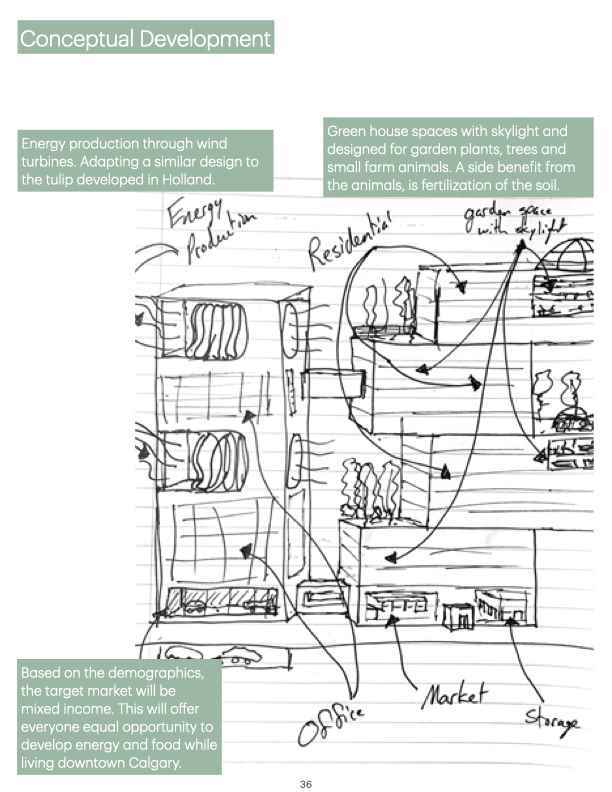 Conceptual Development
Energy production through wind
turbines. Adapting a similar design to
the tulip developed in Holland.
Green house spaces with skylight and
designed for garden plants, trees and
small farm animals. A side benefit from
the animals, is fertilization of the soil.
Energy
Production
Residential
garden space
with skylight
Based on the demographics,
the target market will be
mixed income. This will offer
everyone equal opportunity to
develop energy and food while
living downtown Calgary.
Office
Market
Storage
36